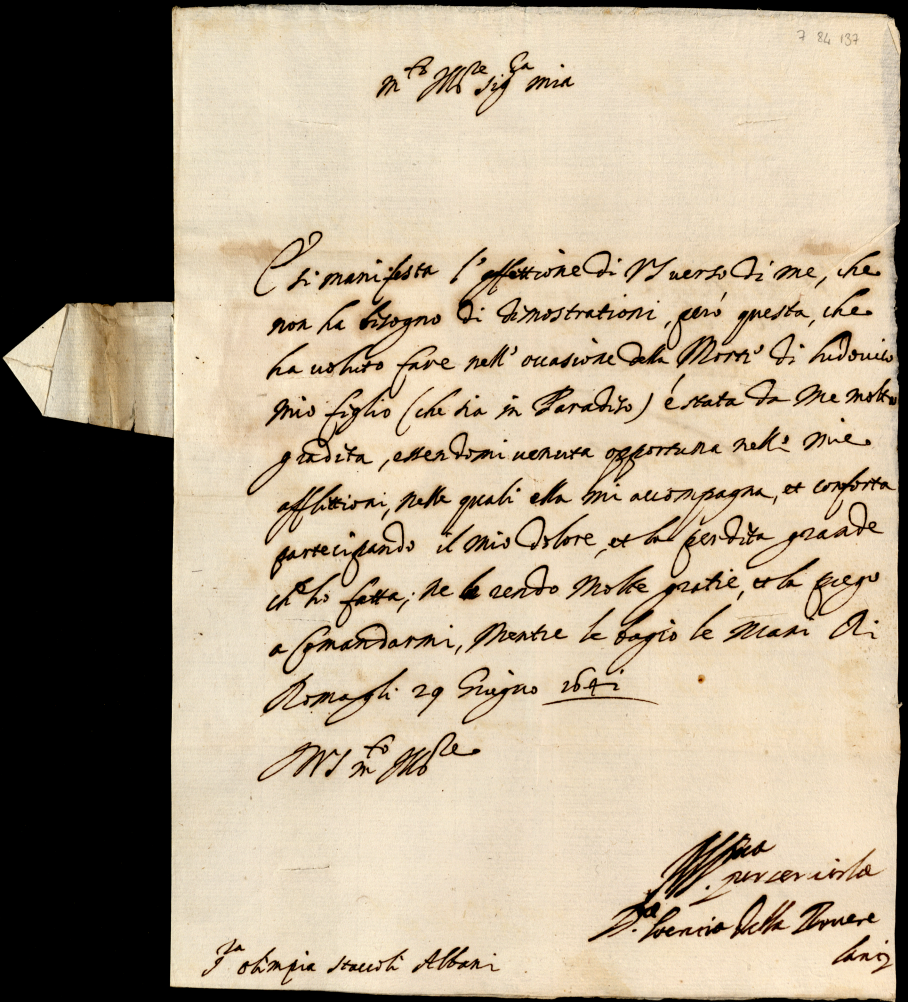 7 84 137
m.to Ill.re Sig.ra mia
E' si manifesta l'affettione di VS verso di me, che
non ha bisogno di dimostrationi, però questa, che
ha voluto fare nell' occasione della Morte di Ludovico
mio figlio (che sia in Paradiso) é stata da me molto
gradita, essendomi venuta opportuna nelle mie
afflittioni, nelle quali ella mi accompagna, et conforta
participando il mio dolore, et la perdita grande
ch'ho fatta; Ne le rendo molte gratie, et la prego
a Comandarmi, Mentre le bagio le Mani Di
Roma gli 29 Giugno 1641
Di VS m.to Ill.re
Aff.ma
per servirla
D.a della Rovere
S.ra Olimpia Staccoli Albani